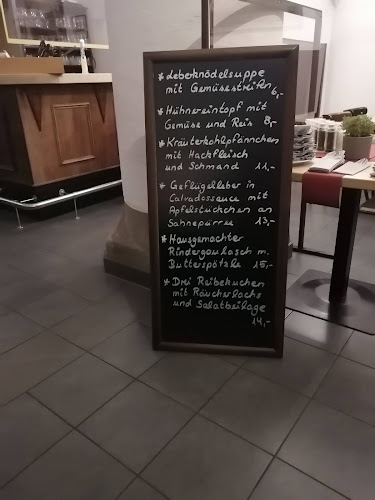 * Leberknödelsuppe
mit Gemüsestreifen 6,-
* Hühnereintopf mit
Gemüse und Reis 8,-
* Kräuterkohlpfännchen
mit Hackfleisch
und Schmand 11,-
* Geflügelleber in
Calvadossauce mit
Apfelstückchen an
Sahnepürree 13,-
* Hausgemachter
Rindergoulasch m.
Butterspätzle 15,-
* Drei Reibekuchen
mit Räucherlachs
und Salatbeilage
14,-